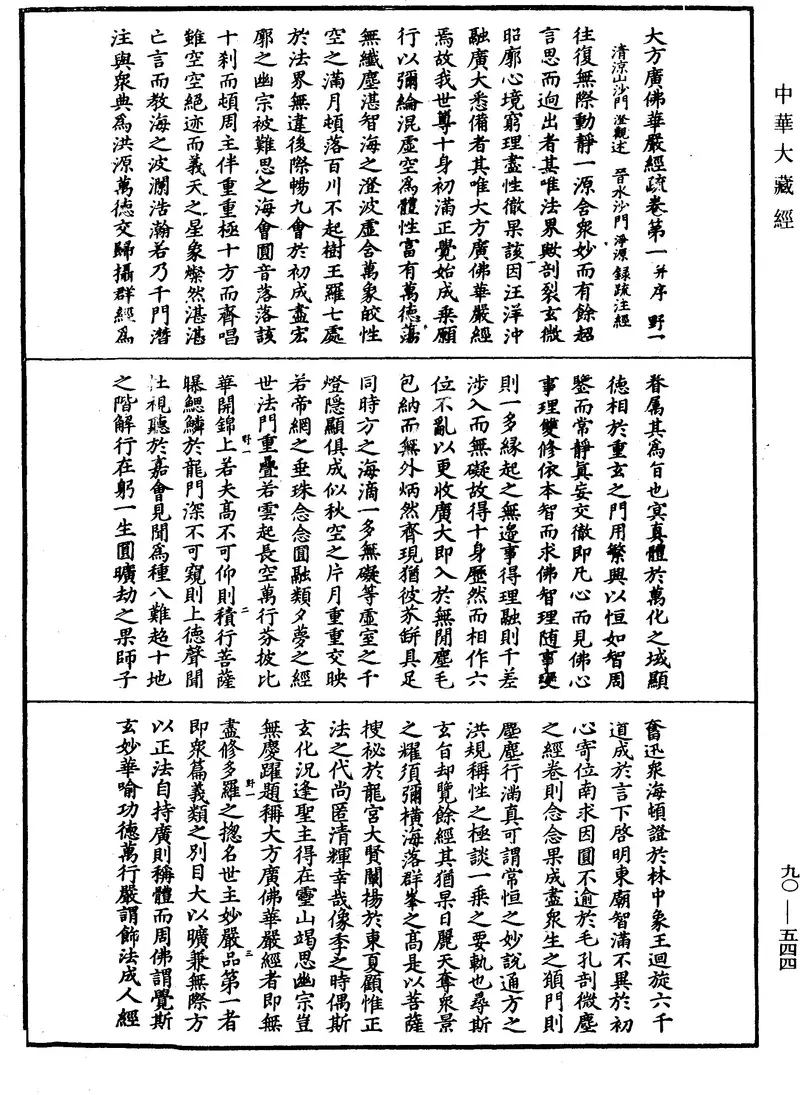 中華大藏經
大方廣佛華嚴經疏卷第一 并序 野一
清涼山沙門 澄觀述 晉水沙門 淨源 録疏注經
往復無際動靜一源含衆妙而有餘超
言思而逈出者其唯法界歟剖裂玄微
昭廓心境窮理盡性徹果該因汪洋沖
融廣大悉備者其唯大方廣佛華嚴經
焉故我世尊十身初滿正覺始成乗願
行以彌綸混虛空爲體性富有萬德蕩
無纖塵湛智海之澄波虛含萬象皎性
空之滿月頓落百川不起樹王羅七處
於法界無違後際暢九會於初成盡宏
廓之幽宗被難思之海會圓音落落該
十刹而頓周主伴重重極十方而齊唱
雖空空絕迹而義天之星象燦然湛湛
亡言而教海之波瀾浩瀚若乃千門潛
注與衆典爲洪源萬德交歸攝群經爲
眷屬其爲旨也冥真體於萬化之域顯
德相於重玄之門用繁興以恒如智周
鑒而常靜真妄交徹即凡心而見佛心
事理雙修依本智而求佛智理随事變
則一多緣起之無邊事得理融則千差
涉入而無礙故得十身歷然而相作六
位不亂以更收廣大即入於無閒塵毛
包納而無外炳然齊現猶彼芥缾具足
同時方之海滴一多無礙等虛室之千
燈隱顯俱成似秋空之片月重重交映
若帝網之垂珠念念圓融類夕夢之經
世法門重疊若雲起長空萬行芬披比
華開錦上若夫高不可仰則積行菩薩
曝鰓鱗於龍門深不可窺則上德聲聞
杜視聽於嘉會見聞爲種八難超十地
之階解行在躬一生圓曠劫之果師子
奮迅衆海頓證於林中象王迴旋六千
道成於言下啓明東廟智滿不異於初
心寄位南求因圓不逾於毛孔剖微塵
之經卷則念念果成盡衆生之願門則
塵塵行滿真可謂常恒之妙說通方之
洪規稱性之極談一乗之要軌也尋斯
玄旨却覽餘經其猶杲日麗天奪衆景
之耀須彌橫海落群峯之高是以菩薩
搜祕於龍宮大賢闡揚於東夏顧惟正
法之代尚匿清輝幸哉像季之時偶斯
玄化況逢聖主得在靈山竭思幽宗豈
無慶躍題稱大方廣佛華嚴經者即無
盡修多羅之揔名世主妙嚴品第一者
即衆篇義類之別目大以曠兼無際方
以正法自持廣則稱體而周佛謂覺斯
玄妙華喻功德萬行嚴謂飾法成人經
野一
二
野一
三
九〇—五四四